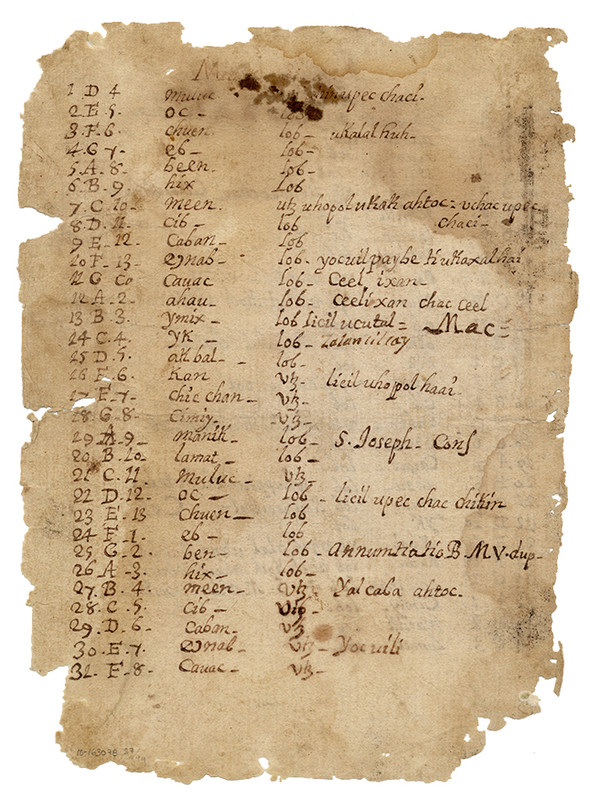 1 D 4 muluc upec chaci-
2 E 5- oc- lob
3. F 6- chuen lob- ukalal huh-
4. G 7- eb- lob-
5. A- 8- been. lob-
6. B- 9. hix Lob
7. C. 10- meen. utz uhopol ukak ahtoc= vchac upec
8. D. 11- Cib- lob chaci-
9 E- 12- Caban- Lob
10 F- 13- eznab- lob- yocuil paybe
11 G Cauac lob- Ceel ixan-
12 A- 2- ahau- lob- Ceelixan chac ceel
13 B 3- ymix- lob licil ucutal= Mac=
14 C. 4- yk- lob-
15 D. 5- akbal- lob-
16 E- 6- Kan vtz- licil uhopol haai
17 F- 7- chicchan- vtz-
18. G. 8- Cimiy vtz-
19 A- 9- manik- lob- S. Joseph- Conf
20 B. 10- lamat- lob-
21 C. 11. Muluc- vtz-
22 D. 12- oc- lob- licil upec chac chikin
23 E- 13 Chuen- lob
24 F- 1- eb- lob
25 G- 2- ben- lob- Annumtiatio B. M. V. dup-
26 A- 3- hix- lob-
27. B. 4- meen- vtz- Yalcaba ahtoc.
28. C. 5- Cib-
29. D. 6- Caban- vtz
30. E. 7- eznab- vtz- Yocuili
31. F- 8- Cauac- vtz-